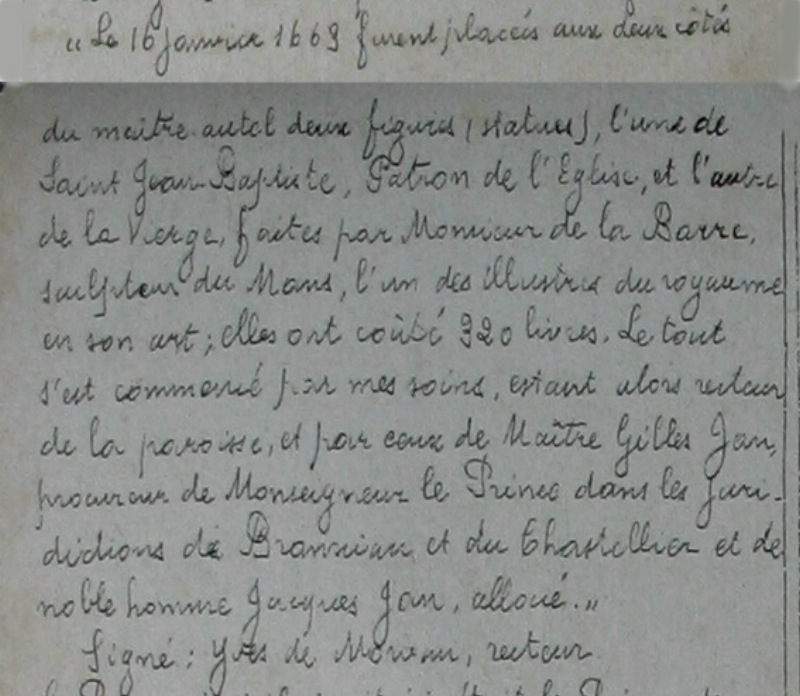 „ Le 16 Janvier 1669 furent placés aux deux côtés
du maître-autel deux figures (statues), l'une de
Saint Jean-Baptiste, Patron de l'Eglise, et l'autre
de la Vierge, faites par Monsieur de la Barre,
sculpteur du Mans, l'un des illustres du royaume
en son art ; elles ont coûté 320 livres. Le tout
s'est commencé par mes soins, estant alors recteur
de la paroisse, et par ceux de Maître Gilles Jan,
procureur de Monseigneur le Prince dans les juri-
dictions de et du Chastellier et de
noble homme Jacques Jan, alloué. „
Signé : Yves de recteur